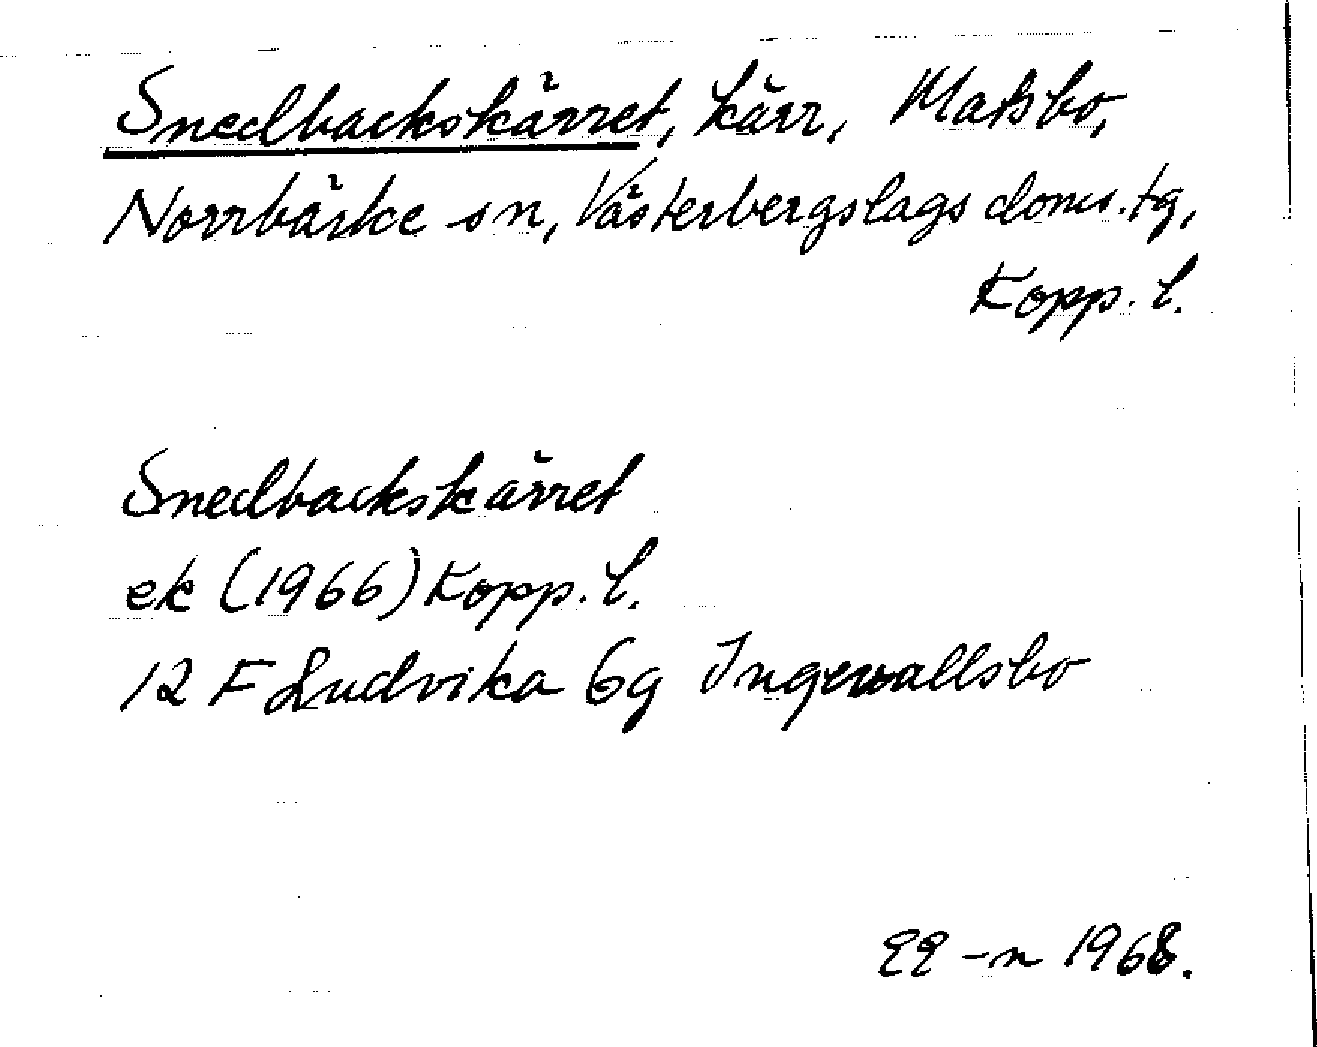 Snedbackskärret, kärr, Matsbo,
Norrbärke sn, Västerbergslags doms.tg,
Kopp. l.
Snedbackskärret
ek (1966) Kopp. l.
12 F Ludvika 6g Ingevallsbo
EE-n 1968.